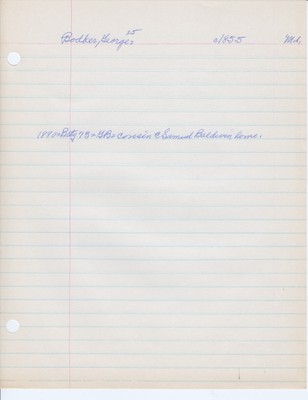 Bodker, George 25 c/1855 Md.
1880 Betty 78 + GB + cousin @ Samuel Baldwin home.